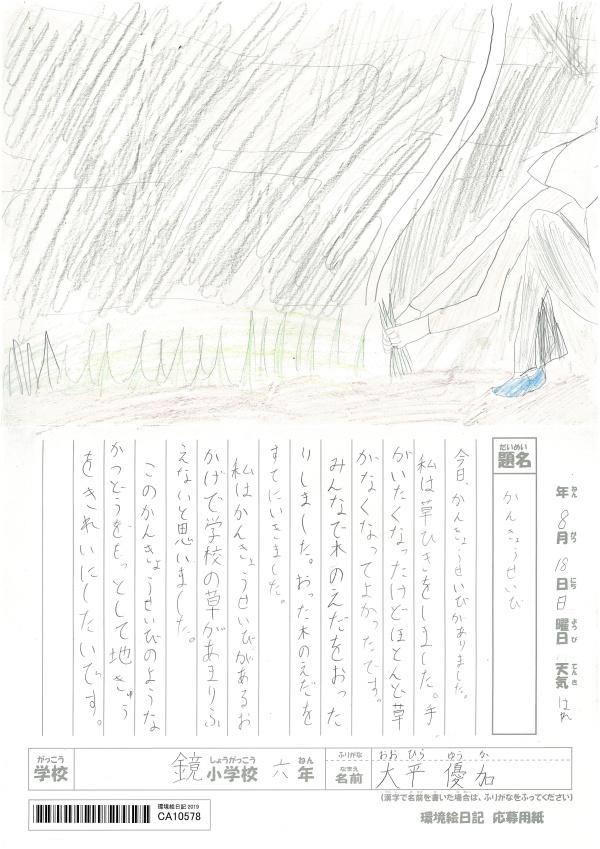 年 8月 18日 日曜日 天気 はれ
ねん がつ にち ようび てんき
だいめい
題名
かんきょうせいび
今日、かんきょうせいびがありました。
私は草ひきをしました。手
がいたくなったけどほとんど草
がなくなってよかったです。
みんなで木のえだをおった
りしました。おった木のえだを
すてにいきました。
私はかんきょうせいびがあるお
かげで学校の草があまりふ
えないと思いました。
このかんきょうせいびのような
かつどうをもっとして地きゅう
をきれいにしたいです。
がっこう
学校
しょうがっこう ねん
鏡小学校 六年
ふりがな おおひら ゆうか
なまえ
名前 大平 優加
(漢字で名前を書いた場合は、ふりがなをふってください)
環境絵日記 2019
CA10578
環境絵日記 応募用紙